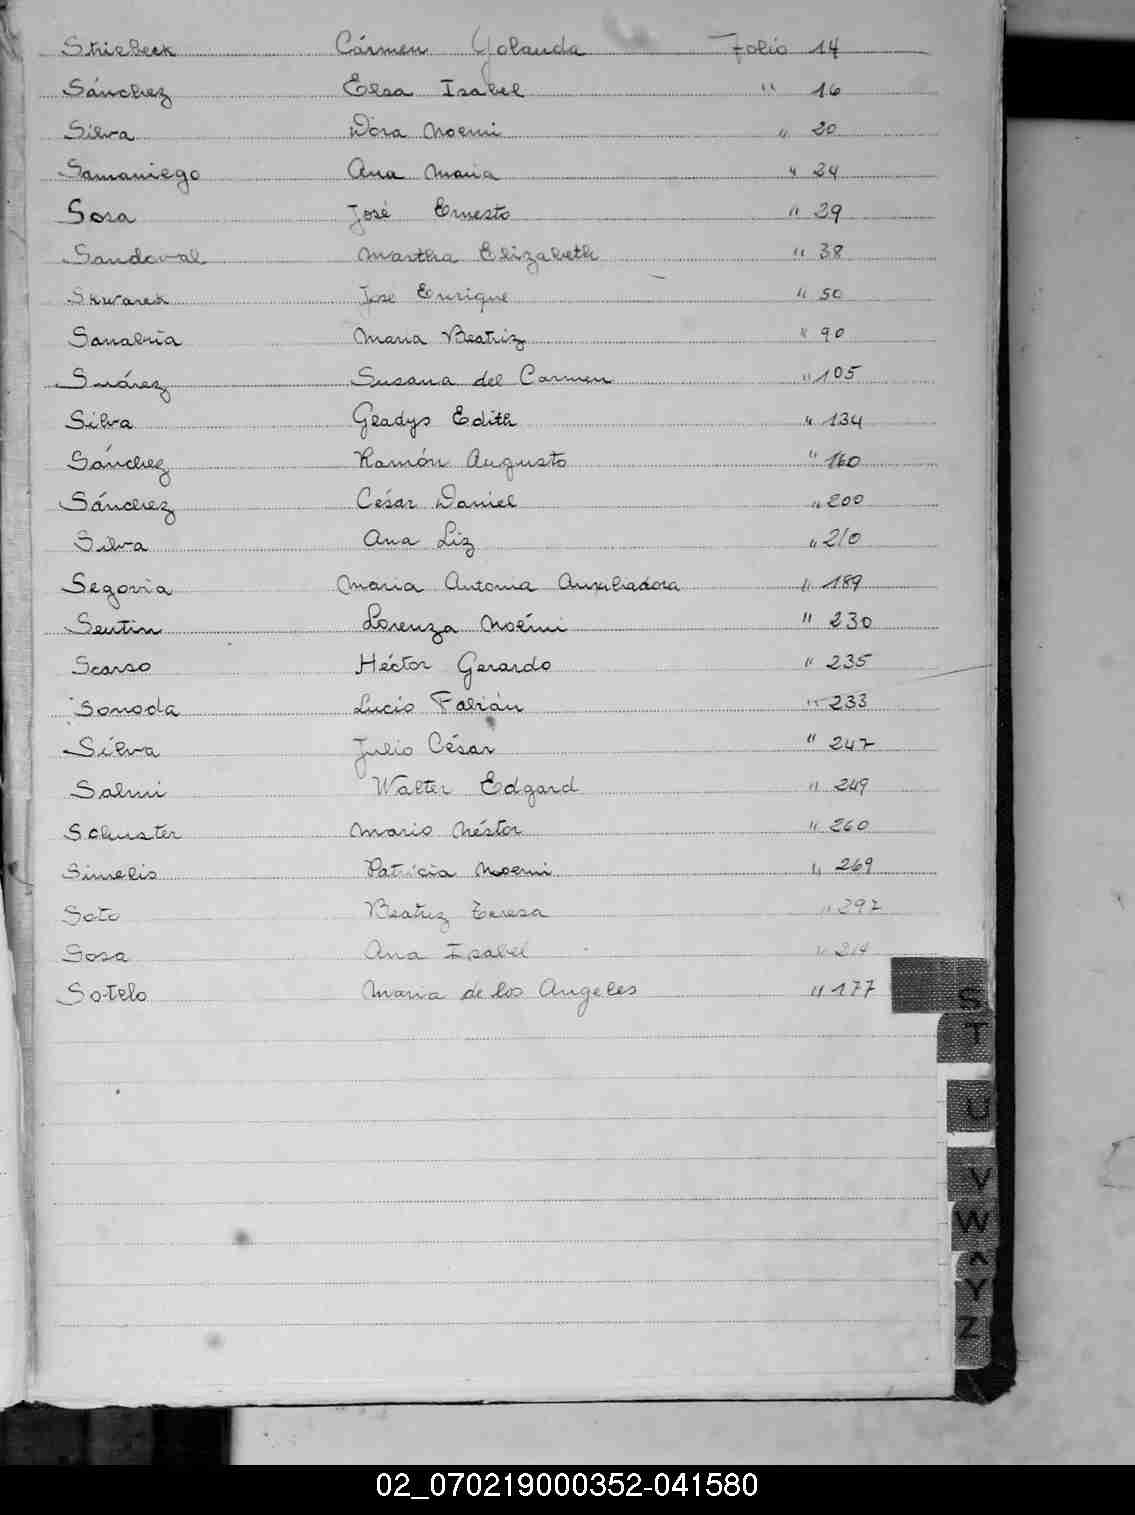 Striebeck Cármen Yolanda Folio 14
Sánchez Elsa Isabel " 16
Silva Dora Noemi " 20
Samaniego Ana Maria " 24
Sosa José Ernesto " 29
Sandoval Martha Elizabeth " 38
Skwarek Jose Enrique " 50
Sanabria Maria Beatriz " 90
Suárez Susana del Carmen " 105
Silva Gladys Edith " 134
Sánchez Ramón Augusto " 160
Sánchez César Daniel " 200
Silva Ana Liz " 210
Segovia Maria Antonia Auxiliadora " 189
Sentin Lorenza Noémi " 230
Scarso Héctor Gerardo " 235
Sonoda Lucio Fabián " 233
Silva Julio César " 247
Salmi Walter Edgard " 249
Schuster Mario Néstor " 260
Simelis Patricia Noemi " 269
Soto Beatriz Teresa " 297
Sosa Ana Isabel " 214
Sotelo Maria de los Angeles " 177
S
T
U
V
W
Y
Z
02_070219000352-041580